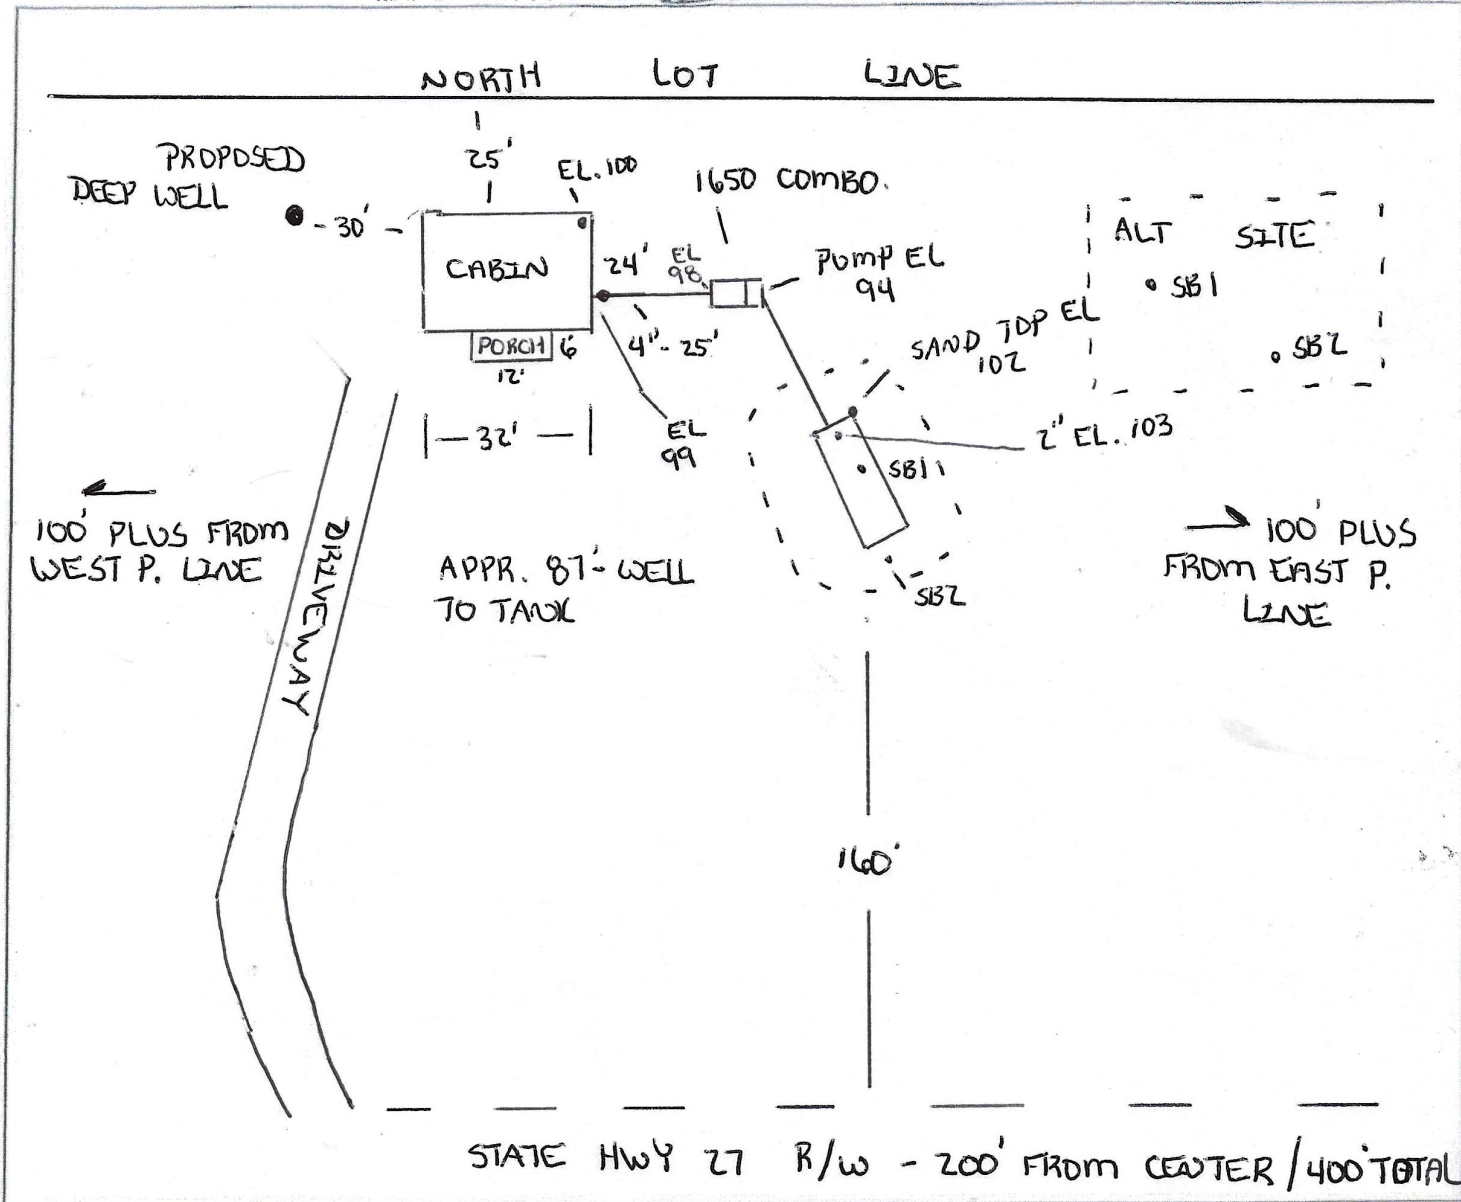 NORTH LOT LINE
PROPOSED
DEEP WELL
- 30' -
25'
EL. 100
1650 COMBO.
CABIN
24'
EL
98
PUMP EL
94
ALT SITE
SB1
SB2
PORCH
6'
12'
4" - 25'
SAND TOP EL
102
32'
EL
99
2" EL. 103
SB1
SB2
100' PLUS FROM
WEST P. LINE
DRIVEWAY
APPR. 87' - WELL
TO TANK
100' PLUS
FROM EAST P.
LINE
160'
STATE HWY 27 R/W - 200' FROM CENTER / 400' TOTAL